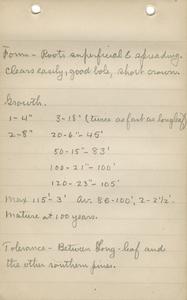 Form - Roots superficial & spreading.
Clears easily, good bole, short crown.
Growth.
1-4" 3-18' (twice as fast as longleaf)
2-8" 20-6"-45'
50-15"-83'
100-21"-100'
120-23"-105'
Max 115-3' Av. 86-100', 2-2½'.
Mature at 100 years.
Tolerance - Between Long-leaf and
the other southern pines.